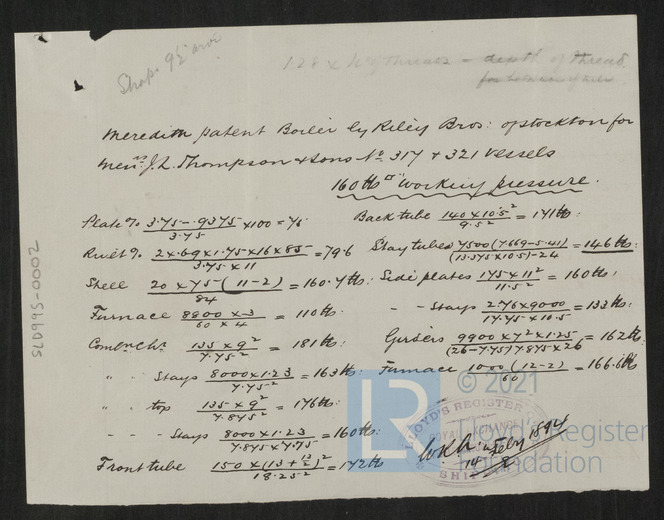 Shop 9½
128 x threads - depth of thread
for
Meredith patent Boiler by Riley Bros: of Stockton for
Mess.rs J.L. Thompson & Sons No 317 + 321 Vessels
160 lbs □" Working pressure.
Plate % 3.75-.9375/3.75 x100 = 75
Back tube 140 x 10.5²/9.5² = 171 lbs:
Rivet % 2x.69x1.75x16x85/3.75 x 11 = 79.6
Stay tubes 7500(7.669-5.41)/(13.375x10.5)-24 = 146 lbs:
Shell 20 x 75 - (11-2)/84 = 160.7 lbs:
Side plates 175 x 11²/11.5² = 160 lbs:
Furnace 8800 x .3/60 x 4 = 110 lbs:
- - Stays 2.76x9000/17.75 x 10.5 = 133 lbs:
Comb.n Ch.r 135 x 9²/7.75² = 181 lbs:
Girders 9900 x 7² x 1.25/(26-7.75)7.875 x 26 = 162 lbs:
" " Stays 8000 x 1.23/7.75² = 163 lbs:
Furnace 1000(12-2)/60 = 166.6 lbs
" " top 135 x 9²/7.875² = 176 lbs:
- - - Stays 8000 x 1.23/7.875x7.75 = 160 lbs:
Front tube 150 x (13+13/2)²/18.25² = 172 lbs
14 Feby 1894
LLOYD'S REGISTER
ROYAL EXCHANGE
SHIP
SLD995-0002
LR
© 2021
Lloyd's Register
Foundation